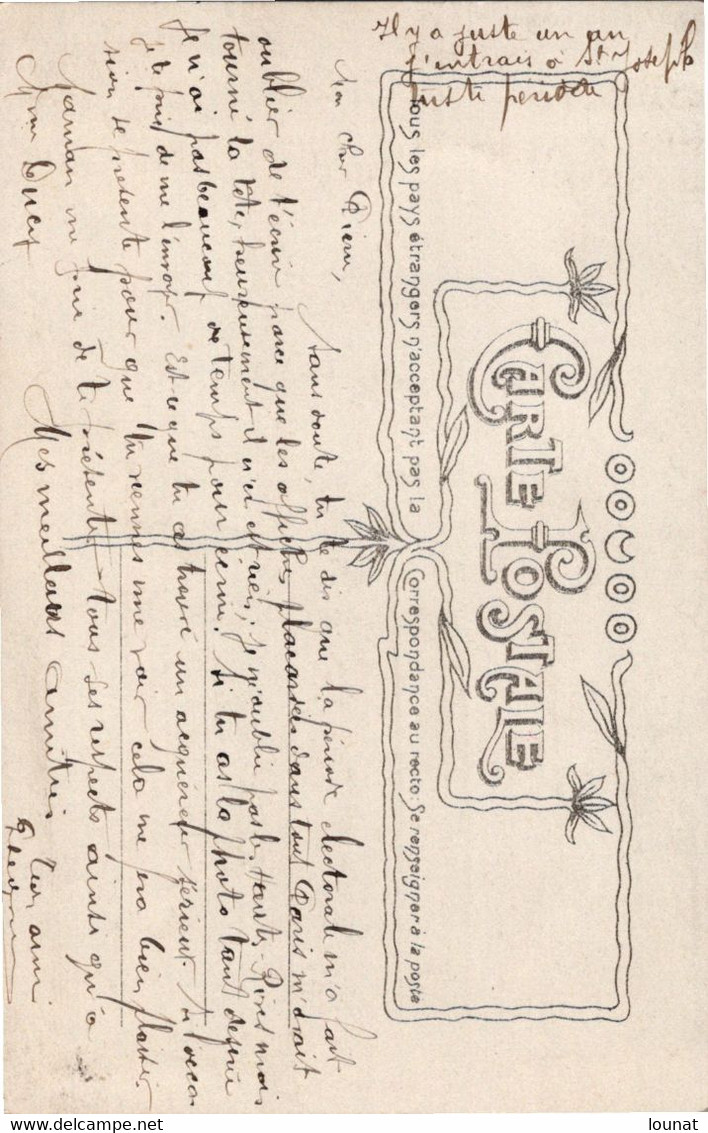 Il y a juste un an
j'entrais à St Joseph
triste période
CARTE POSTALE
Tous les pays étrangers n'acceptant pas la Correspondance au recto: Se renseigner à la poste
Mon cher Pierre,
Sans doute, tu te dis que la période électorale m'a fait
oublier de t'écrire parce que les affiches placardées dans tout Paris m'avait
tourné la tête, heureusement il n'en est rien, je n'oublie pas les mais
Je n'ai pas beaucoup de temps pour écrire. Si tu as la photo tant désirée
je te prie de me l'envoyer. Est-ce que tu as trouvé un acquéreur sérieux. Si l'occa
sion se présente pour que tu viennes me voir cela me fera bien plaisir.
Maman me prie de te présenter tous ses respects ainsi qu'à
Mme
Mes meilleures amitiés
Ton ami
lounat